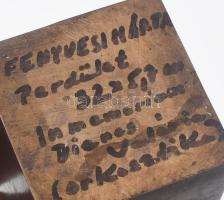 FENYVESI MÁRTA
Perdület
32x57 cm
In memoriam
Dienes
Valéria